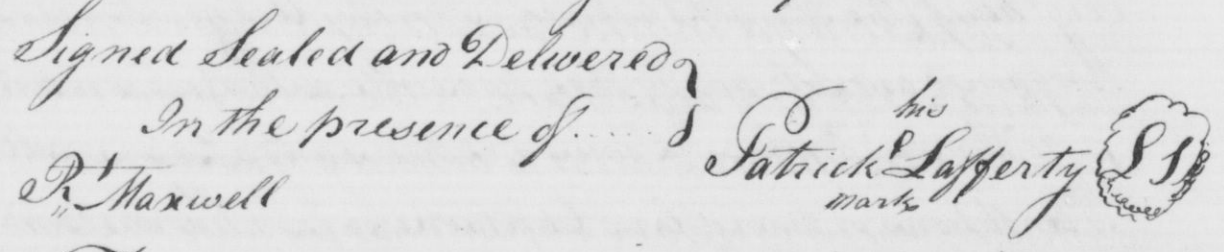 Signed Sealed and Delivered
In the presence of .....
Rt Maxwell
his
Patrick P Lafferty
mark